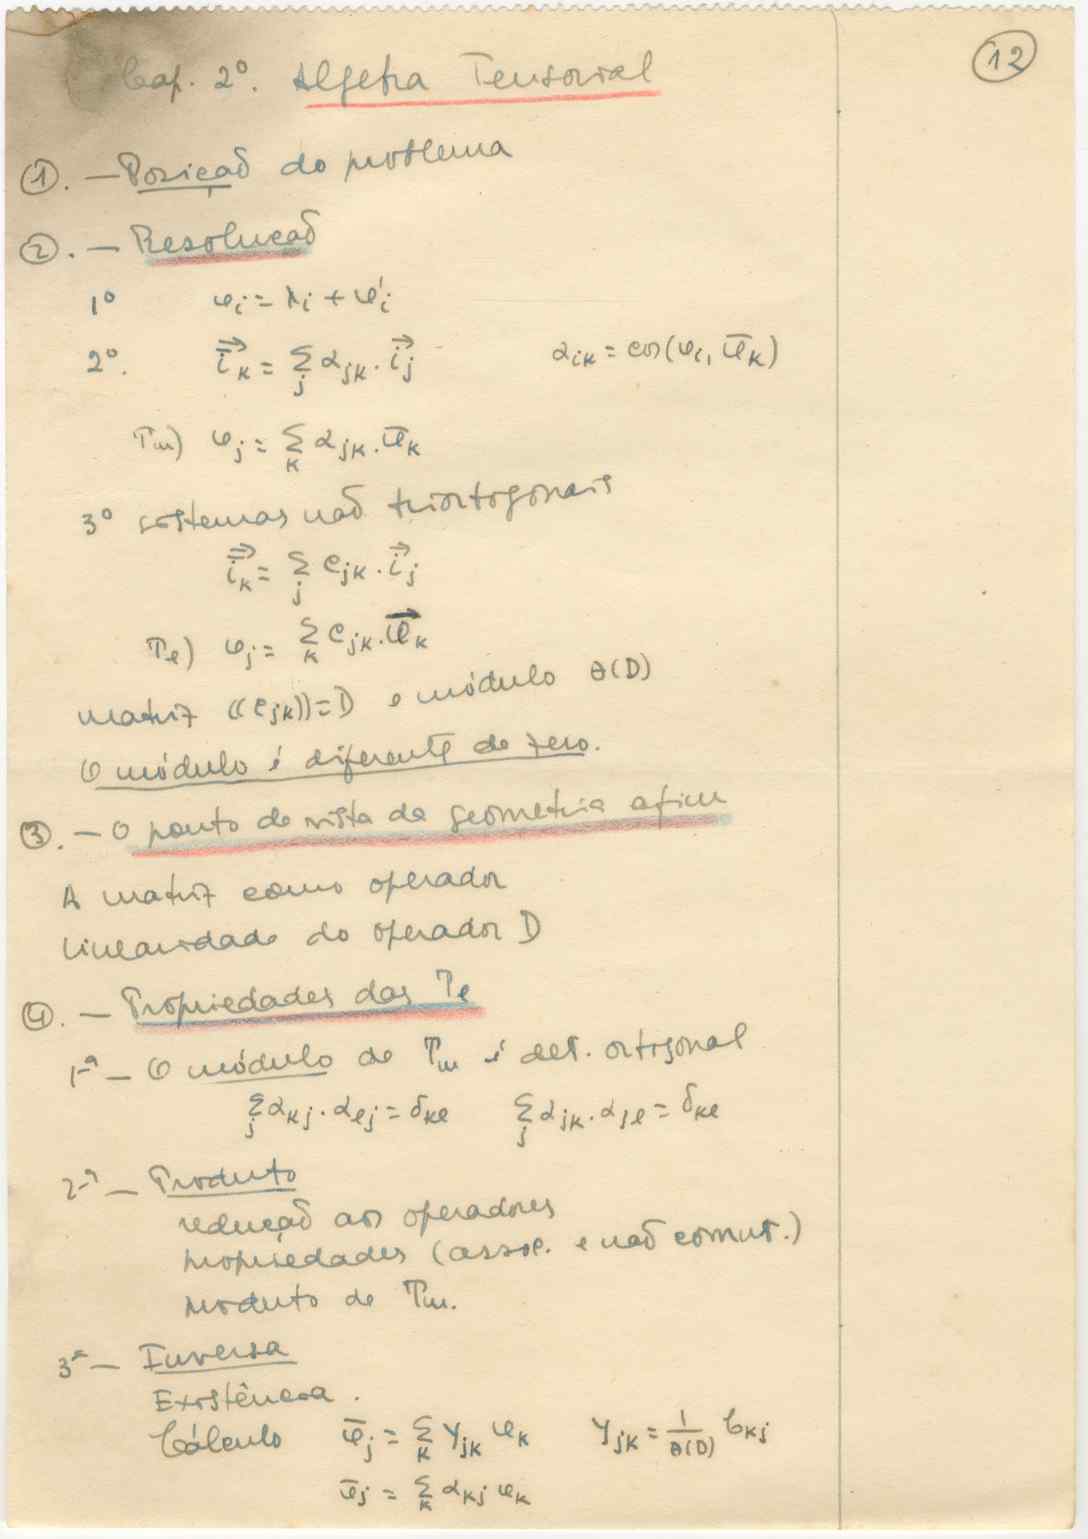 12
Cap. 2º. Algebra Tensorial
1. — Posição do problema
2. — Resolução
1º φi = λi + φ'i
2º. i̿⃗k = Σj αjk . i⃗j αik = cos(φi, φ̄k)
Tm) φj = Σk αjk . φ̄k
3º sistemas não triortogonais
i̿⃗k = Σj cjk . i⃗j
Te) φj = Σk cjk . φ̄k
matriz ((cjk)) = D e módulo θ(D)
O módulo é diferente de zero.
3. — O ponto de vista da geometria afim
A matriz como operador
Linearidade do operador D
4. — Propriedades das Te
1ª — O módulo de Tm é det. ortogonal
Σj αkj . αlj = δkl Σj αjk . αjl = δkl
2ª — Produto
redução aos operadores
propriedades (assoc. e não comut.)
produto de Tm.
3ª — Inversa
Existência .
Cálculo φ̄j = Σk γjk φk γjk = 1/θ(D) Ckj
φ̄j = Σk αkj φk